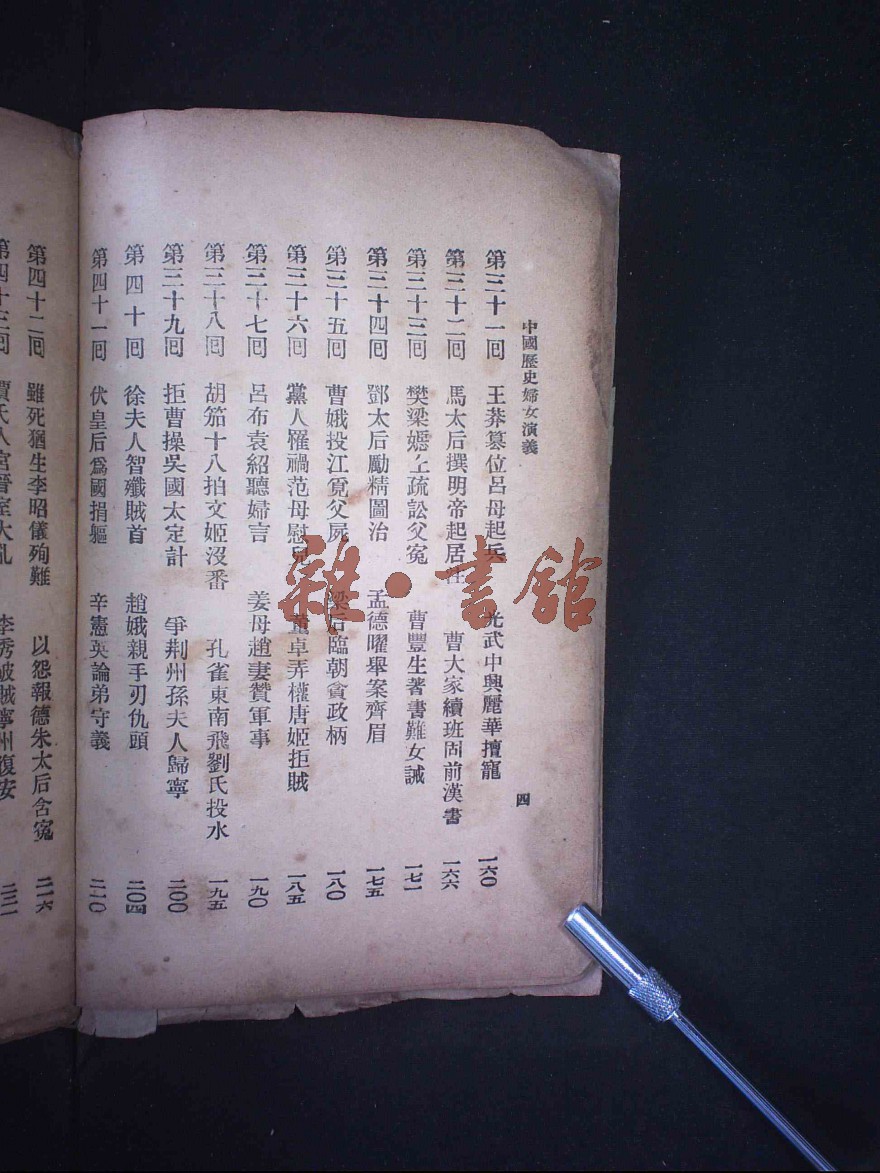 中國歷史婦女演義
四
第三十一回 王莽篡位呂母起兵 光武中興麗華擅寵 一六〇
第三十二回 馬太后撰明帝起居注 曹大家續班固前漢書 一六六
第三十三回 樊梁嫕上疏訟父冤 曹豐生著書難女誡 一七一
第三十四回 鄧太后勵精圖治 孟德曜舉案齊眉 一七五
第三十五回 曹娥投江覓父屍 梁后臨朝貪政柄 一八〇
第三十六回 黨人罹禍范母慰兒 董卓弄權唐姬拒賊 一八五
第三十七回 呂布袁紹聽婦言 姜母趙妻贊軍事 一九〇
第三十八回 胡笳十八拍文姬沒番 孔雀東南飛劉氏投水 一九五
第三十九回 拒曹操吳國太定計 爭荆州孫夫人歸寧 二〇〇
第四十回 徐夫人智殲賊首 趙娥親手刃仇頭 二〇四
第四十一回 伏皇后爲國捐軀 辛憲英論弟守義 二一〇
第四十二回 雖死猶生李昭儀殉難 以怨報德朱太后含冤 二一六
第四十三回 賈氏入宮晉室大亂 李秀破賊寧州復安
雜·書館